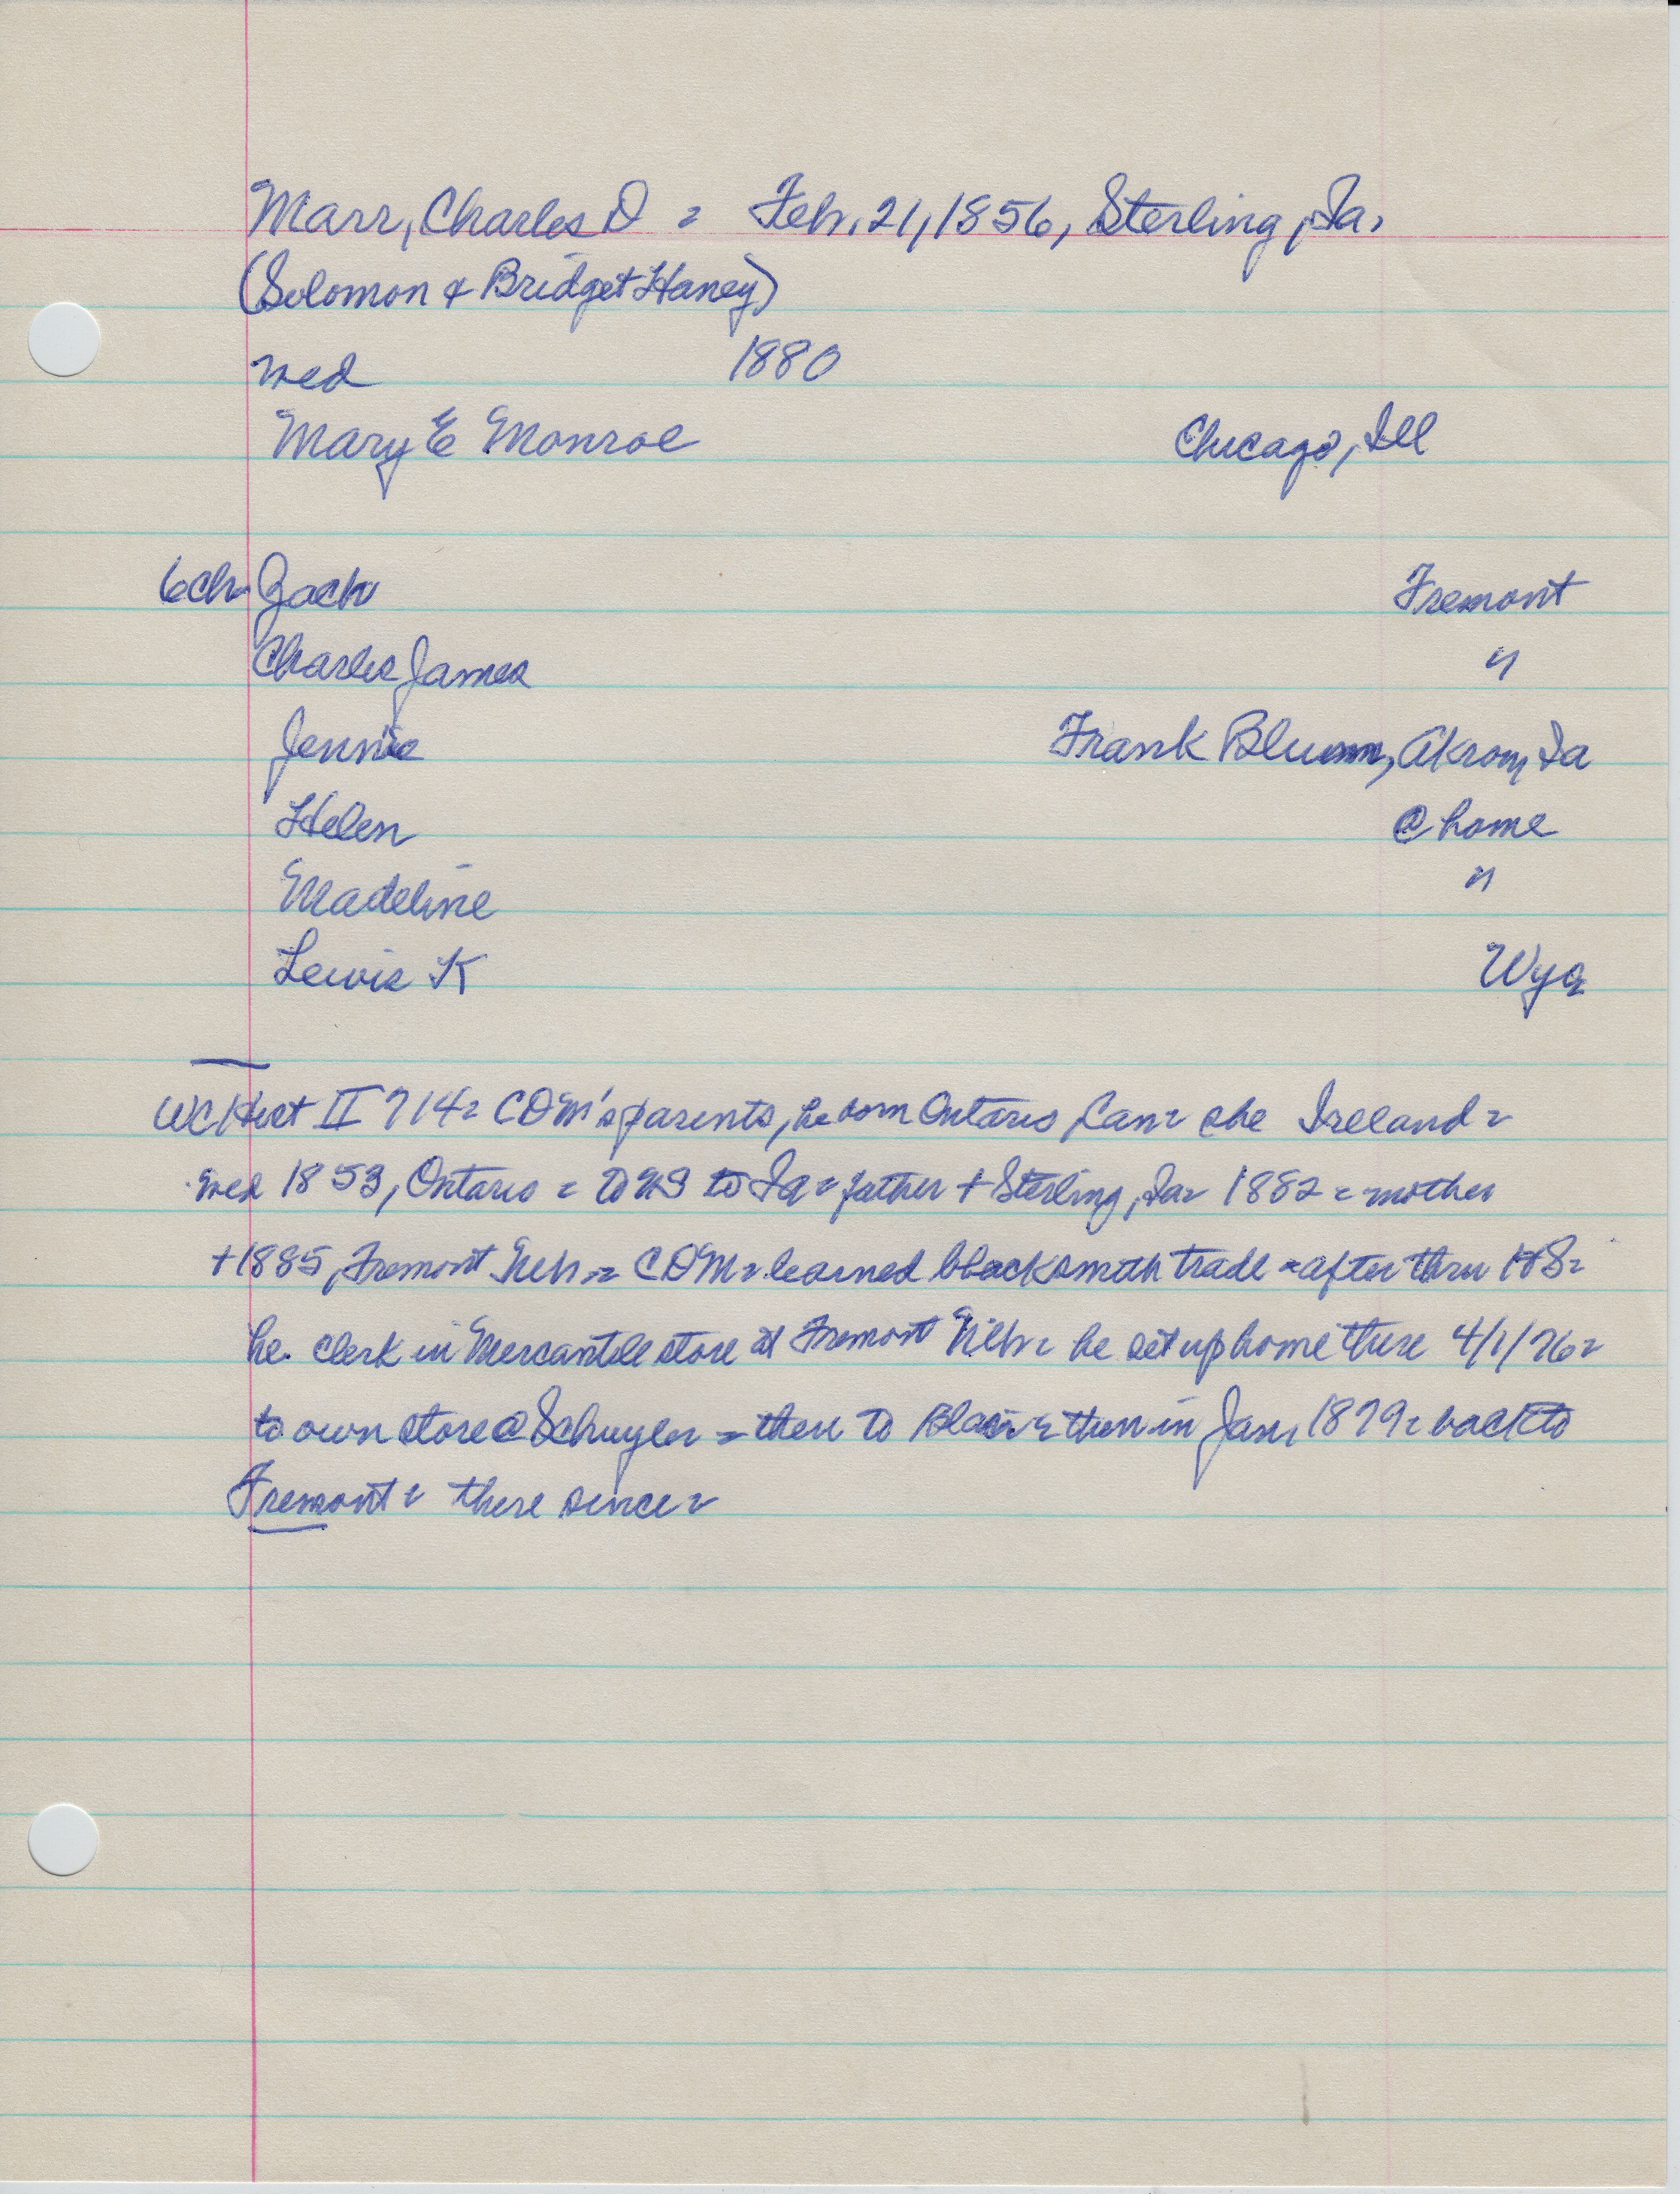 Marr, Charles D = Feb. 21, 1856, Sterling, Ia.
(Solomon & Bridget Haney)
wed 1880
Mary E Monroe Chicago, Ill
6ch- Zach Fremont
Charles James "
Jennie Frank Blumm, Akron, Ia
Helen @ home
Madeline "
Lewis K Wyo
II 714= CDM's parents, he born Ontario, Can= she Ireland=
wed 1853, Ontario = to US to Ia = father + Sterling, Ia= 1882 = mother
+1885, Fremont Neb = CDM = learned blacksmith trade = after thru HS=
he clerk in Mercantile store at Fremont Neb = he set up home there 4/1/76=
to own store @ Schuyler = then to Blair = then in Jan, 1879= back to
Fremont = there since=